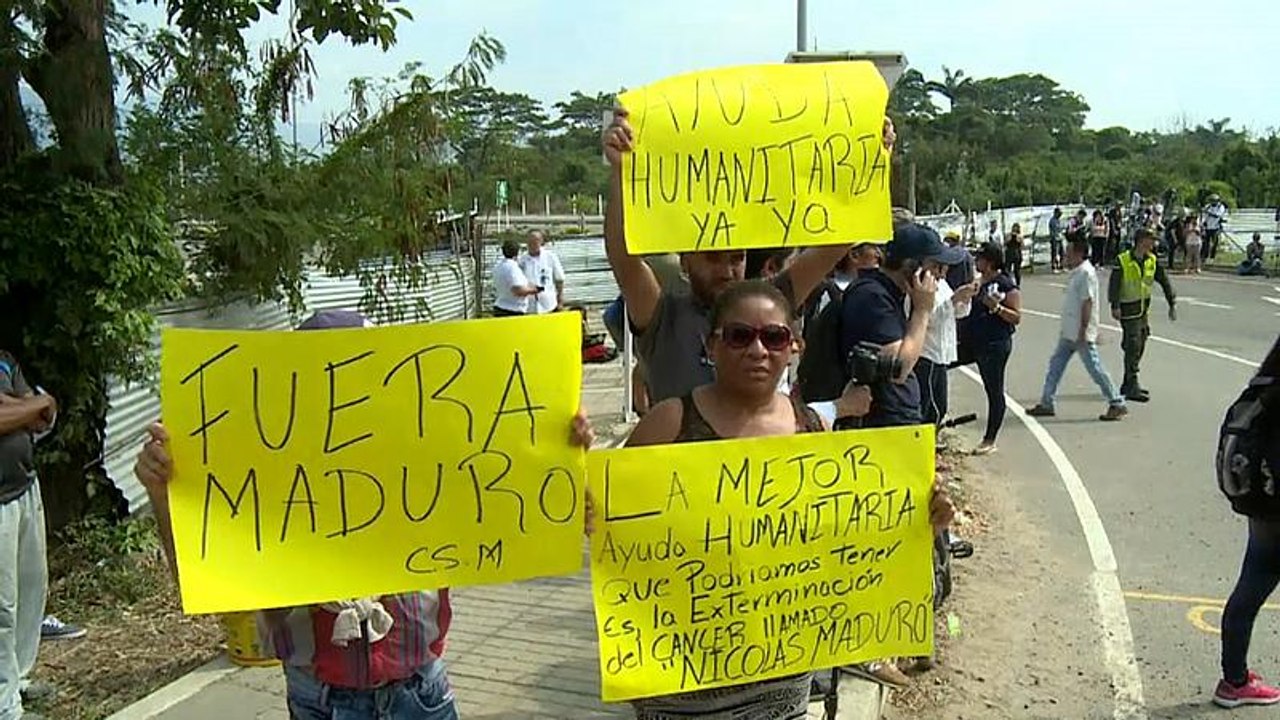 AYUDA
HUMANITARIA
YA YA
FUERA
MADURO
CS.M
LA MEJOR
Ayuda HUMANITARIA
Que Podriamos Tener
Es la ExTerminación
del CANCER llAMADO
"NICOLAS MADURO"